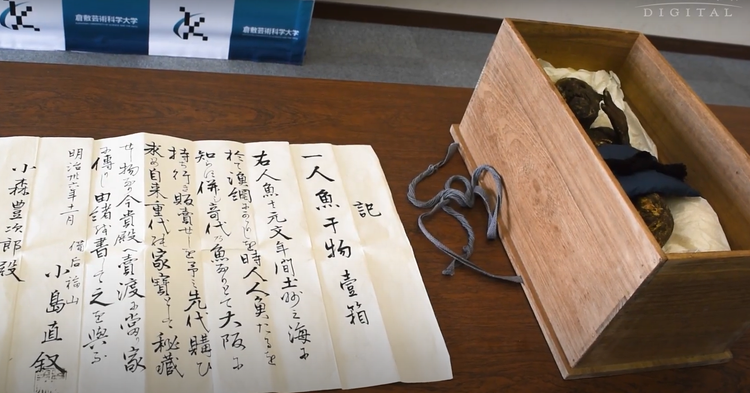 倉敷芸術科学大学
倉敷芸術科学大学
DIGITAL
記
一人魚干物 壹箱
右人魚は元文年間土州之海に
於て漁網にかゝりしを時人人魚たるを
知らに併し奇代の魚なりとて大阪に
持ち行き販賣せしを予之先代購ひ
求め自来重代の家寶として秘蔵
せし物なり今貴殿へ賣渡に當り家
に傳りし由緒を書して之を與ふ
明治卅六年十一月 備后福山
小島直
小森豊次郎殿